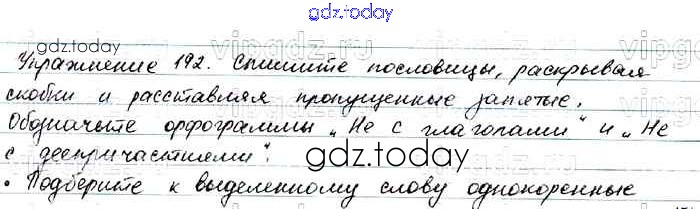 gdz.today
gdz.today
Упражнение 192. Спишите пословицы, раскрывая
скобки и расставляя пропущенные запятые.
Обозначьте орфограммы „Не с глаголами" и „Не
с деепричастиями".
gdz.today
• Подберите к выделенному слову однокоренные